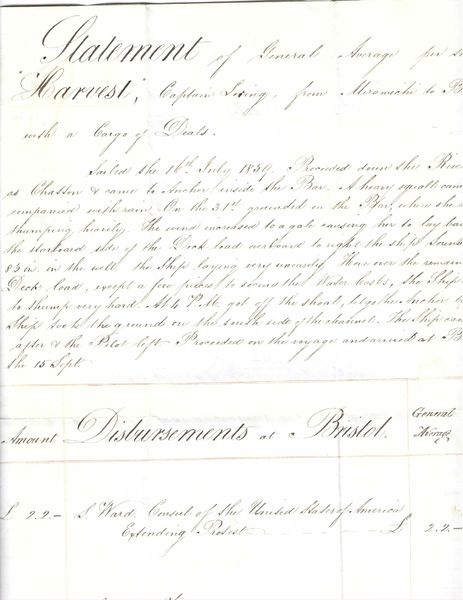 Statement of General Average per s
"Harvest", Captain Living, from Miramichi to B
with a Cargo of Deals.
Sailed the 16th July 1839. Proceeded down the River
as Chasson & came to Anchor inside the Bar. A heavy squall cam
companied with rain. On the 31st grounded on the Bar, where she
thumping heavily. The wind increased to a gale causing her to lay
the starboard side of the Deck load overboard to right the ship. Sound
83 in. in the well, the Ship laying very uneasily. Hove over the remain
Deck load, except a few pieces to secure the Water Casks, the Ship
to thump very hard. At 4 P.M. got off the shoal, let go the Anchor
Ship took the ground on the south side of the channel. The Ship cam
after & the Pilot left. Proceeded on the voyage and arrived at B
the 15 Sept.
Amount Disbursements at Bristol. General Average
£ 2.2.- S. Ward, Consul of the United States of America
Extending Protest £ 2.2.-